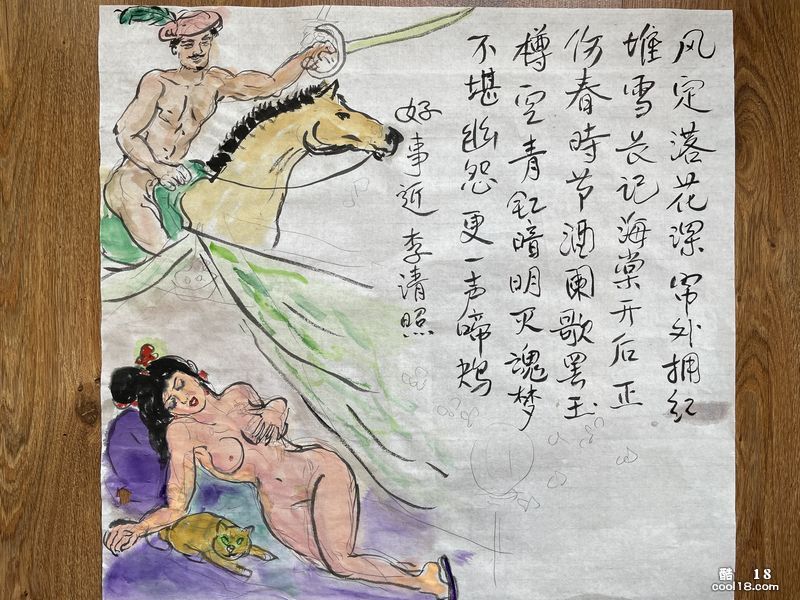 风定落花深帘外拥红
堆雪长记海棠开后正
伤春时节酒阑歌罢玉
樽空青缸暗明灭魂梦
不堪幽怨更一声啼鴂
好事近 李清照
酷 18
cool18.com